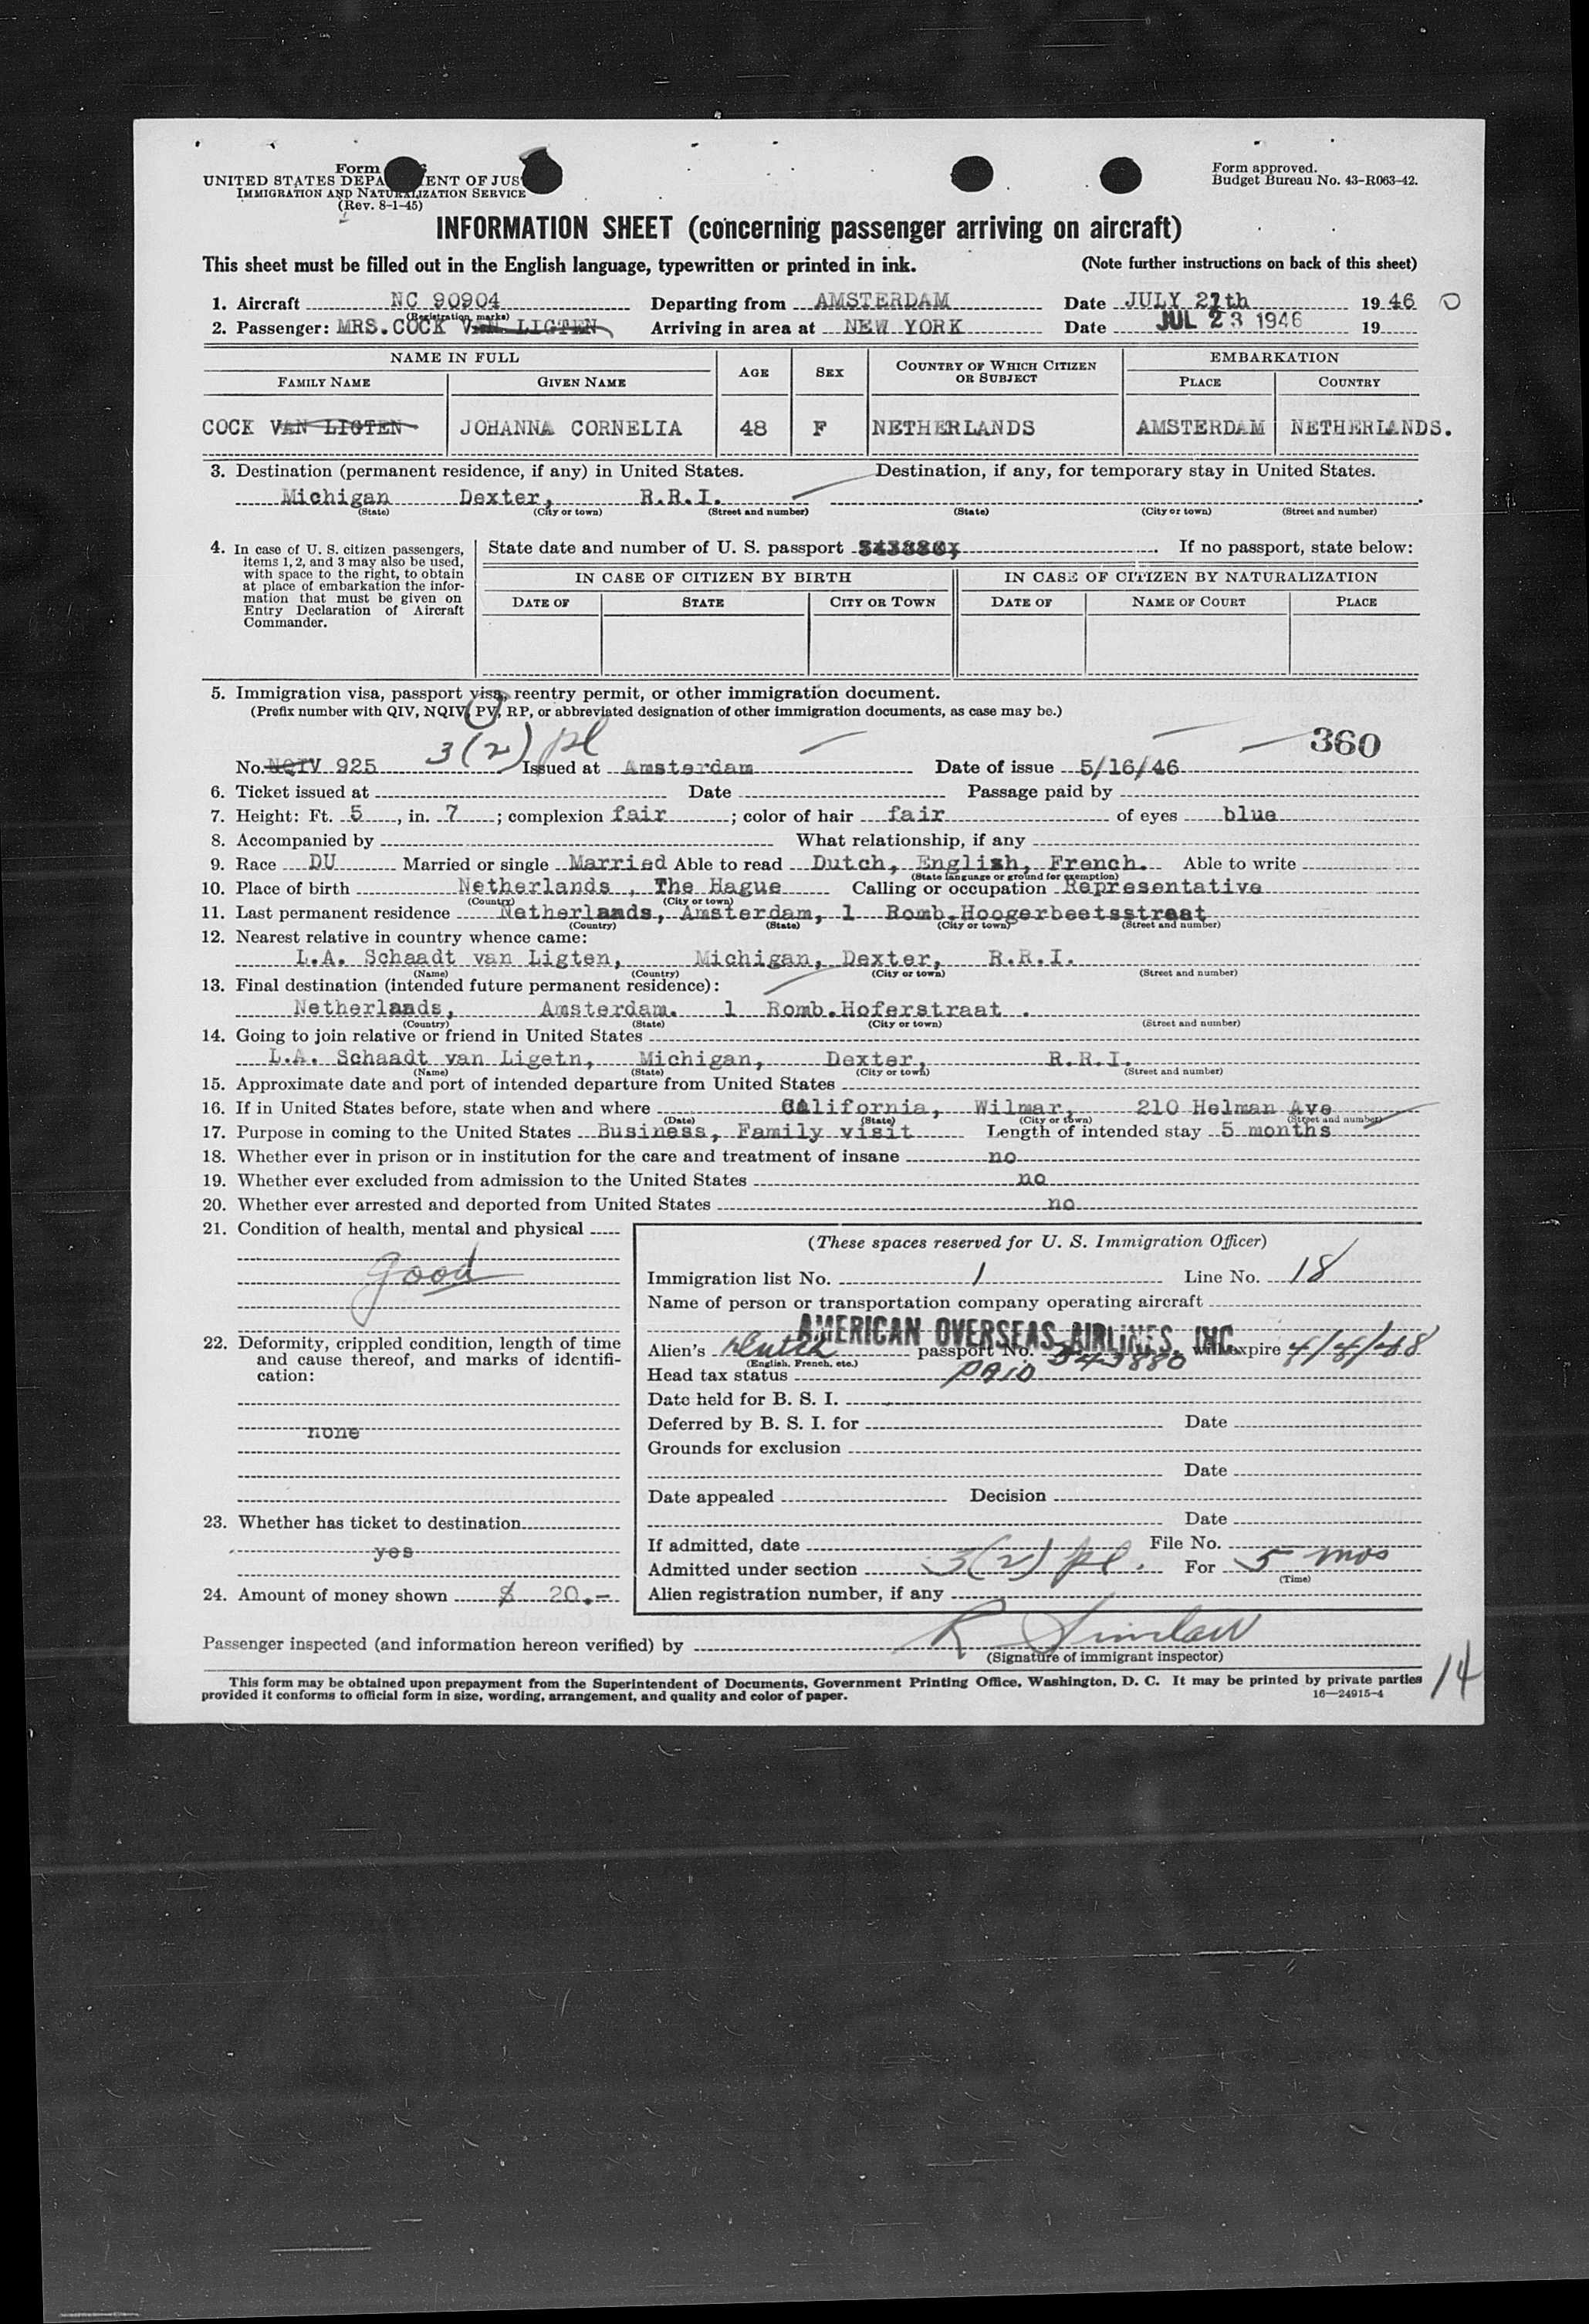 Form
UNITED STATES DEPA ENT OF JUS
IMMIGRATION AND NATURALIZATION SERVICE
(Rev. 8-1-45)
Form approved.
Budget Bureau No. 43-R063-42.
INFORMATION SHEET (concerning passenger arriving on aircraft)
This sheet must be filled out in the English language, typewritten or printed in ink. (Note further instructions on back of this sheet)
1. Aircraft NC 90904 Departing from AMSTERDAM Date JULY 21th 1946 0
(Registration marks)
2. Passenger: MRS. COCK VAN LIGTEN Arriving in area at NEW YORK Date JUL 23 1946 19
NAME IN FULL AGE SEX COUNTRY OF WHICH CITIZEN OR SUBJECT EMBARKATION
FAMILY NAME GIVEN NAME PLACE COUNTRY
COCK VAN LIGTEN JOHANNA CORNELIA 48 F NETHERLANDS AMSTERDAM NETHERLANDS.
3. Destination (permanent residence, if any) in United States. Destination, if any, for temporary stay in United States.
Michigan Dexter, R.R.I.
(State) (City or town) (Street and number) (State) (City or town) (Street and number)
4. In case of U. S. citizen passengers, items 1, 2, and 3 may also be used, with space to the right, to obtain at place of embarkation the information that must be given on Entry Declaration of Aircraft Commander.
State date and number of U. S. passport If no passport, state below:
IN CASE OF CITIZEN BY BIRTH IN CASE OF CITIZEN BY NATURALIZATION
DATE OF STATE CITY OR TOWN DATE OF NAME OF COURT PLACE
5. Immigration visa, passport visa, reentry permit, or other immigration document.
(Prefix number with QIV, NQIV, PV, RP, or abbreviated designation of other immigration documents, as case may be.)
3(2) pl 360
No. NQIV 925 Issued at Amsterdam Date of issue 5/16/46
6. Ticket issued at Date Passage paid by
7. Height: Ft. 5, in. 7; complexion fair; color of hair fair of eyes blue
8. Accompanied by What relationship, if any
9. Race DU Married or single Married Able to read Dutch, English, French. Able to write
(State language or ground for exemption)
10. Place of birth Netherlands, The Hague Calling or occupation Representative
(Country) (City or town)
11. Last permanent residence Netherlands, Amsterdam, 1 Romb.Hoogerbeetsstraat
(Country) (State) (City or town) (Street and number)
12. Nearest relative in country whence came:
L.A. Schaadt van Ligten, Michigan, Dexter, R.R.I.
(Name) (Country) (City or town) (Street and number)
13. Final destination (intended future permanent residence):
Netherlands, Amsterdam. 1 Romb.Hoferstraat .
(Country) (State) (City or town) (Street and number)
14. Going to join relative or friend in United States
L.A. Schaadt van Ligetn, Michigan, Dexter, R.R.I.
(Name) (State) (City or town) (Street and number)
15. Approximate date and port of intended departure from United States
16. If in United States before, state when and where California, Wilmar, 210 Helman Ave
(Date) (State) (City or town) (Street and number)
17. Purpose in coming to the United States Business, Family visit Length of intended stay 5 months
18. Whether ever in prison or in institution for the care and treatment of insane no
19. Whether ever excluded from admission to the United States no
20. Whether ever arrested and deported from United States no
21. Condition of health, mental and physical
good
22. Deformity, crippled condition, length of time and cause thereof, and marks of identification:
none
23. Whether has ticket to destination
yes
24. Amount of money shown $ 20.-
(These spaces reserved for U. S. Immigration Officer)
Immigration list No. 1 Line No. 18
Name of person or transportation company operating aircraft
AMERICAN OVERSEAS AIRLINES, INC.
Alien's Dutch passport No. 343880 will expire 4/4/48
(English, French, etc.)
Head tax status PAID
Date held for B. S. I.
Deferred by B. S. I. for Date
Grounds for exclusion
Date
Date appealed Decision
Date
If admitted, date File No.
Admitted under section 3(2) pl. For 5 mos
(Time)
Alien registration number, if any
Passenger inspected (and information hereon verified) by
(Signature of immigrant inspector)
14
This form may be obtained upon prepayment from the Superintendent of Documents, Government Printing Office, Washington, D. C. It may be printed by private parties
provided it conforms to official form in size, wording, arrangement, and quality and color of paper. 16—24915-4